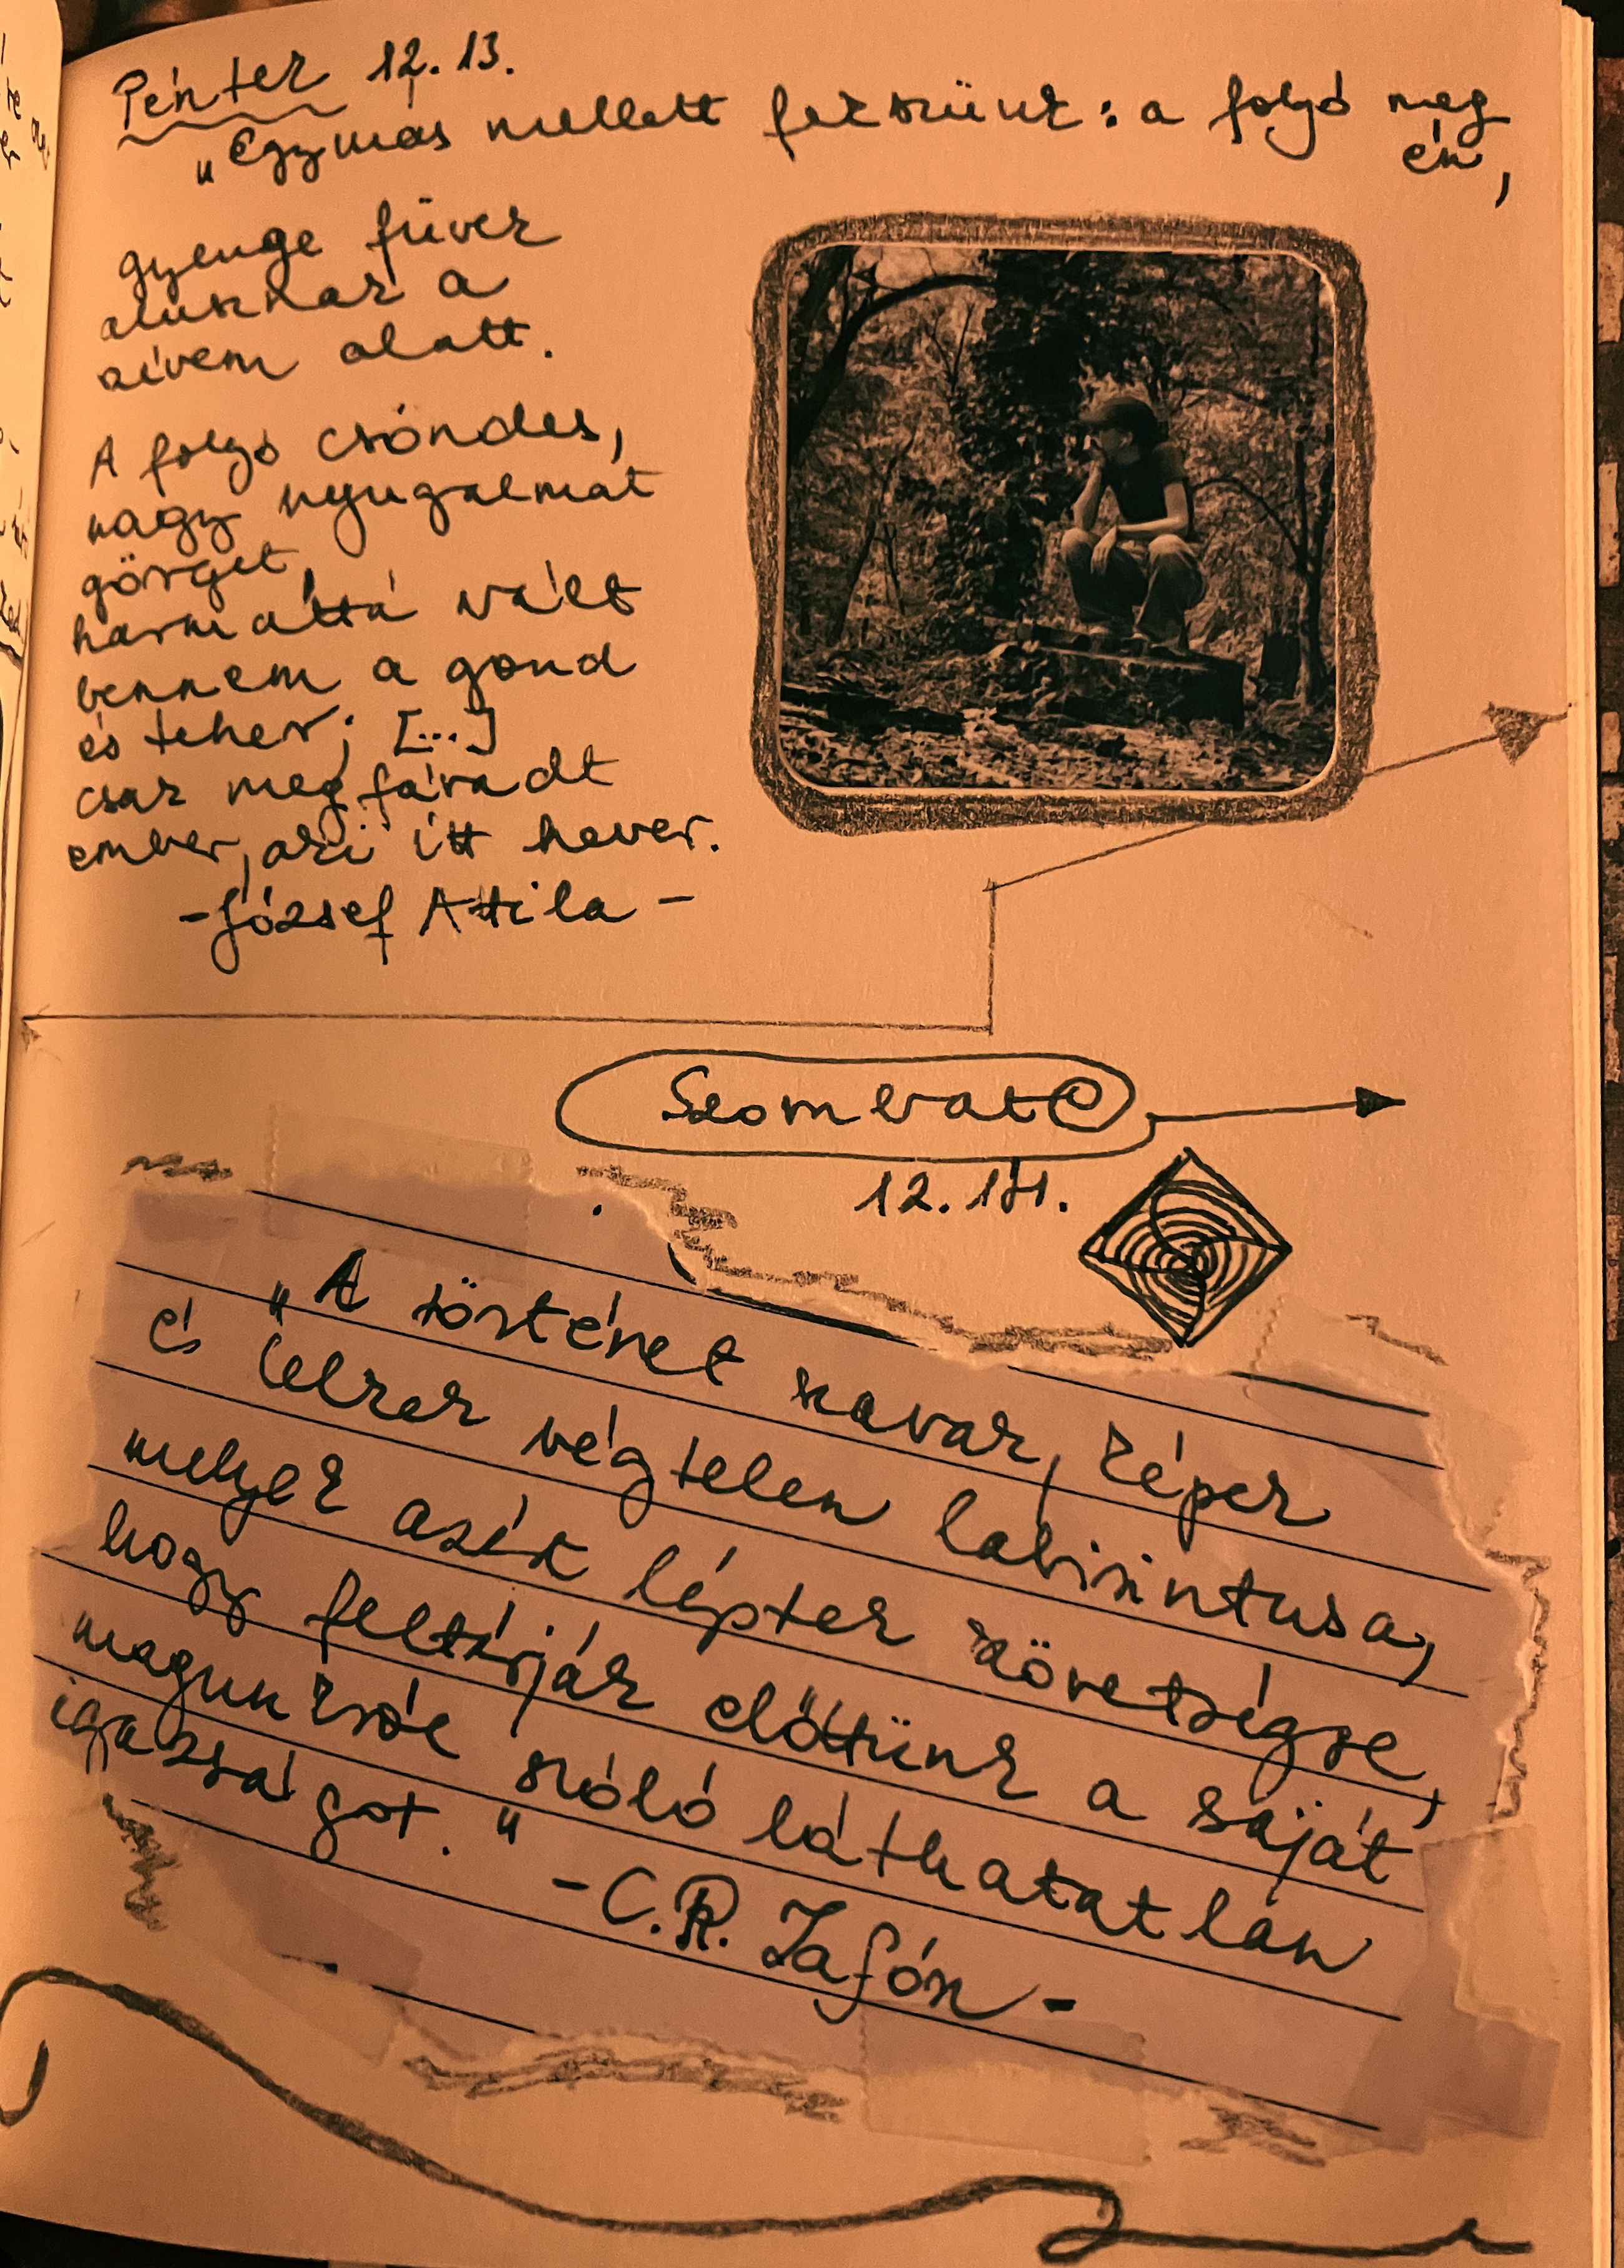 Péntek 12.13.
„Egymás mellett fekszünk: a folyó meg
én,
gyenge füvek
alusznak a
szívem alatt.
A folyó csöndes,
nagy nyugalmat
görget,
harmattá vált
bennem a gond
és teher; [...]
csak megfáradt
ember, aki itt hever.
-József Attila-
Szombat
12.14.
„A történet szavak, képek
és lelkek végtelen labirintusa,
melyek azért léptek szövetségre,
hogy feltárják előttünk a saját
magunkról szóló láthatatlan
igazságot."
-C.R. Zafón-